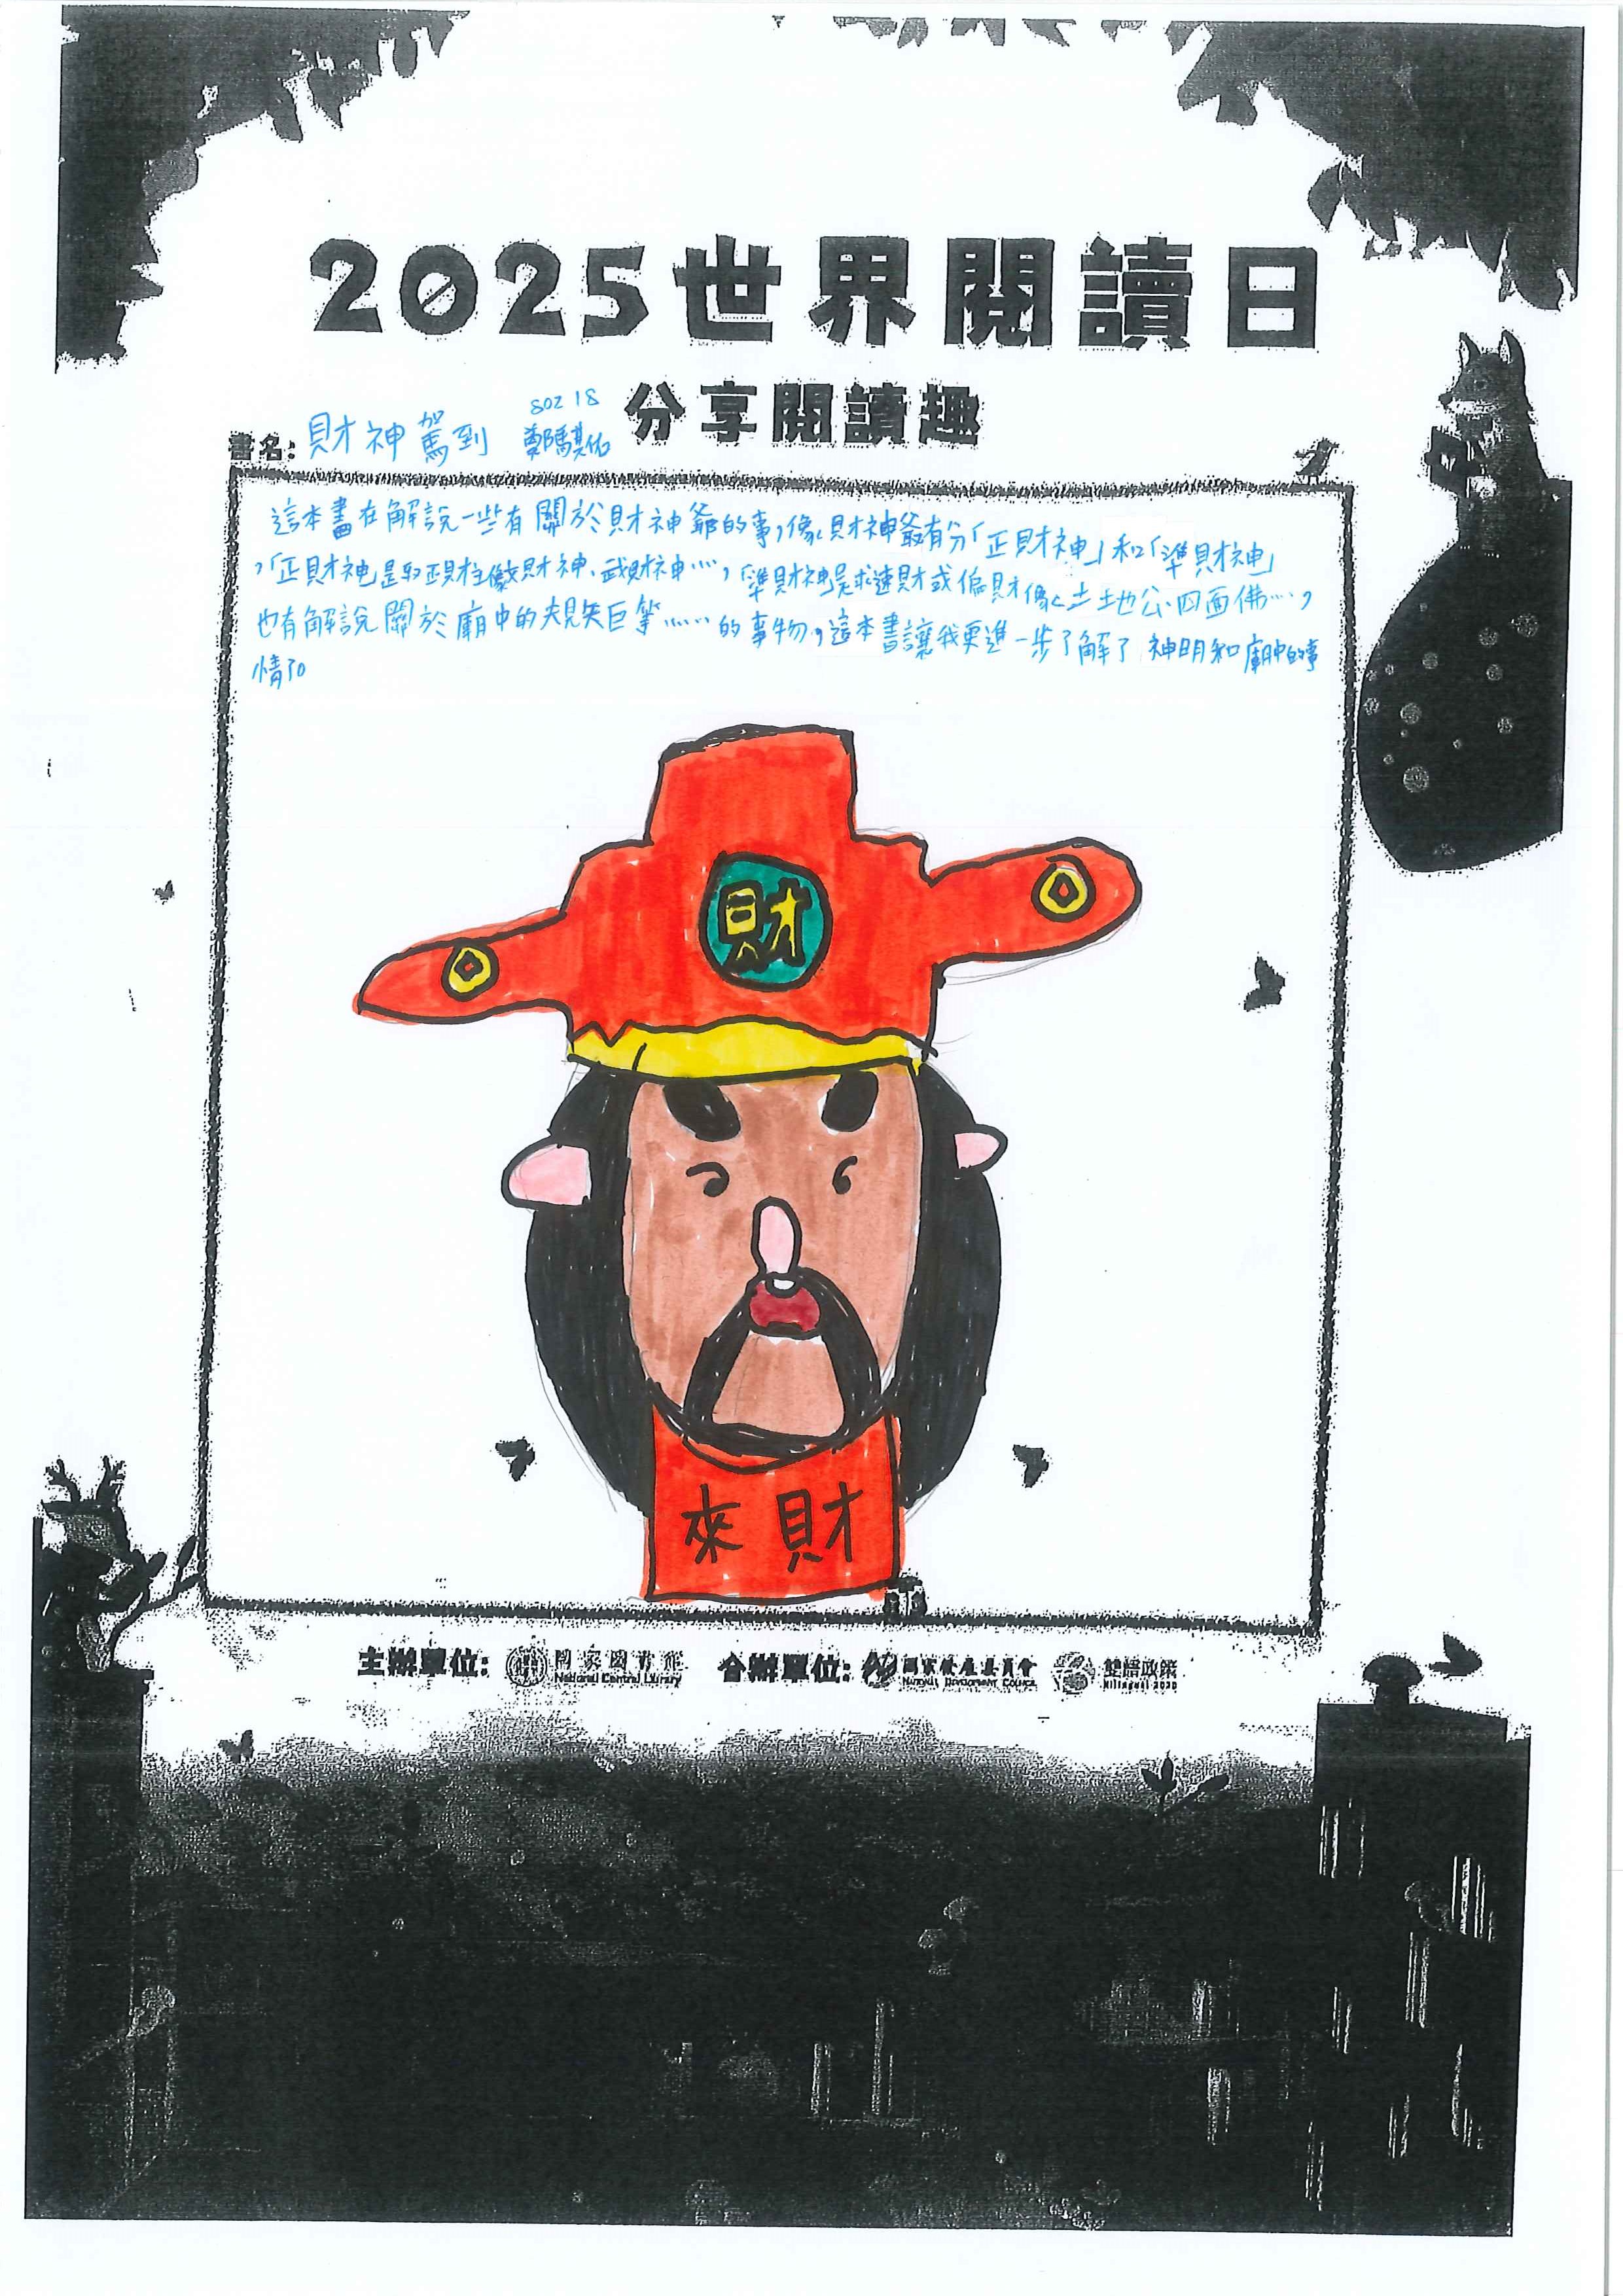 2025世界閱讀日
分享閱讀趣
80218
書名:財神駕到 鄭騏佑
這本書在解說一些有關於財神爺的事,像財神爺有分「正財神」和「準財神」
,「正財神」是求正財像文財神、武財神……,「準財神」是求速財或偏財像土地公、四面佛……,
也有解說關於廟中的規矩、笅……的事物,這本書讓我更進一步了解了神明和廟中的事
情了。
財
來財
主辦單位: 國家圖書館 National Central Library 合辦單位: 國家發展委員會 National Development Council 雙語政策 Bilingual 2030